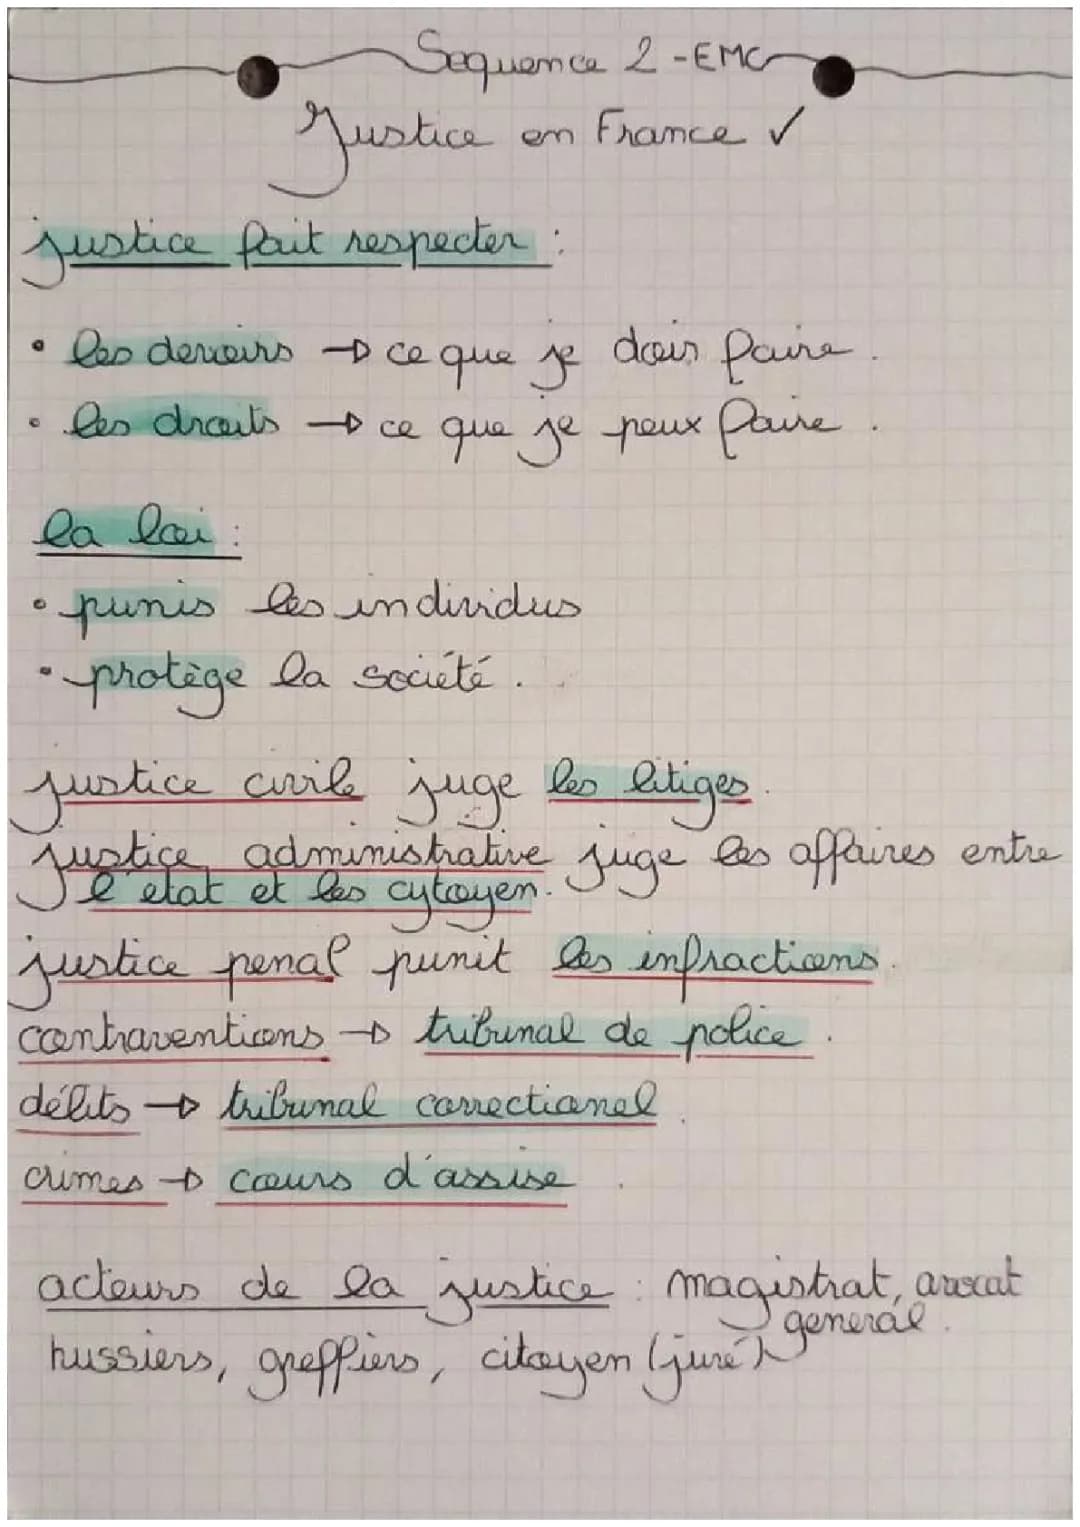 Sequence 2 - EMC
Justice en France ✓
justice fait respecter :
• les devoirs → ce que je dois faire.
• les droits → ce que je peux faire.
la loi :
• punis les individus
• protège la société.
justice civile juge les litiges.
justice administrative juge les affaires entre
l'etat et les cytoyen.
justice penal punit les infractions.
contraventions → tribunal de police.
délits → tribunal correctionel.
crimes → cours d'assise.
acteurs de la justice : magistrat, avocat
general.
hussiers, greffiers, citoyen (juré)